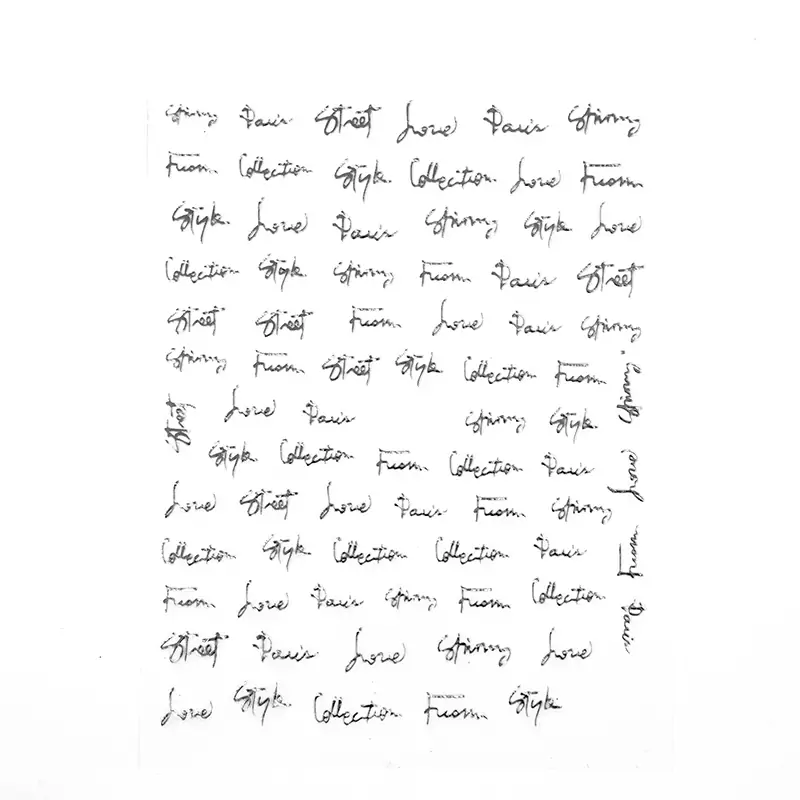 Spring Paris Street Love Paris Spring
From Collection Style Collection Love From
Style Love Paris Spring Style Love
Collection Style Spring From Paris Street
Street Street From Love Paris Spring
Spring From Street Style Collection From
Street Love Paris Spring Style Spring
Style Collection From Collection Paris Love
Love Street Love Paris From Spring
Collection Style Collection Collection Paris From
From Love Paris Spring From Collection Paris
Street Paris Love Spring Love
Love Style Collection From Style